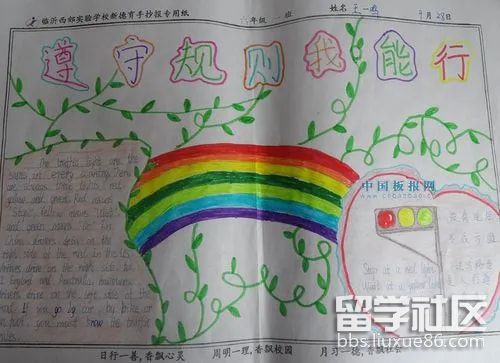 临沂西郊实验学校新德育手抄报专用纸 六年级 一班 姓名 王一鸣 9月28日
遵守规则我能行
The traffic light are the
same in every country. There
are always three lights, red
yellow and green. Red means
"Stop", yellow means "Wait"
and green means "Go". In
China, drivers drive on the
right side of the road. In the US
drivers drive on the right side, too.
In England and Australia, however,
drivers drive on the left side of the
road. If you go by car, by bike or
on foot, you must know the traffic
rules.
中国板报网
cnbanbao.net
Stop at a red light
Wait at a yellow light
日行一善,香飘心灵 周明一理,香飘校园 月习一德,香飘社会
留学社区
bbs.liuxue86.com